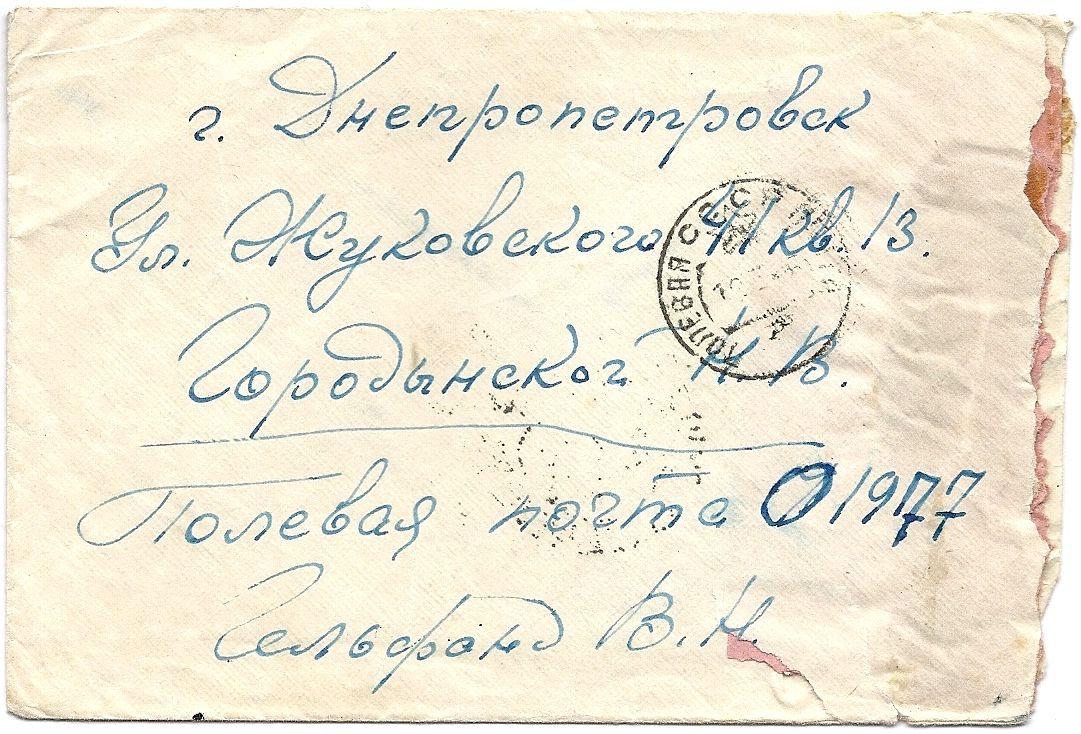 г. Днепропетровск
Ул. Жуковского 41 кв. 13.
Городынской Н.В.
Полевая почта 01977
Гельфанд В.Н.
СССР